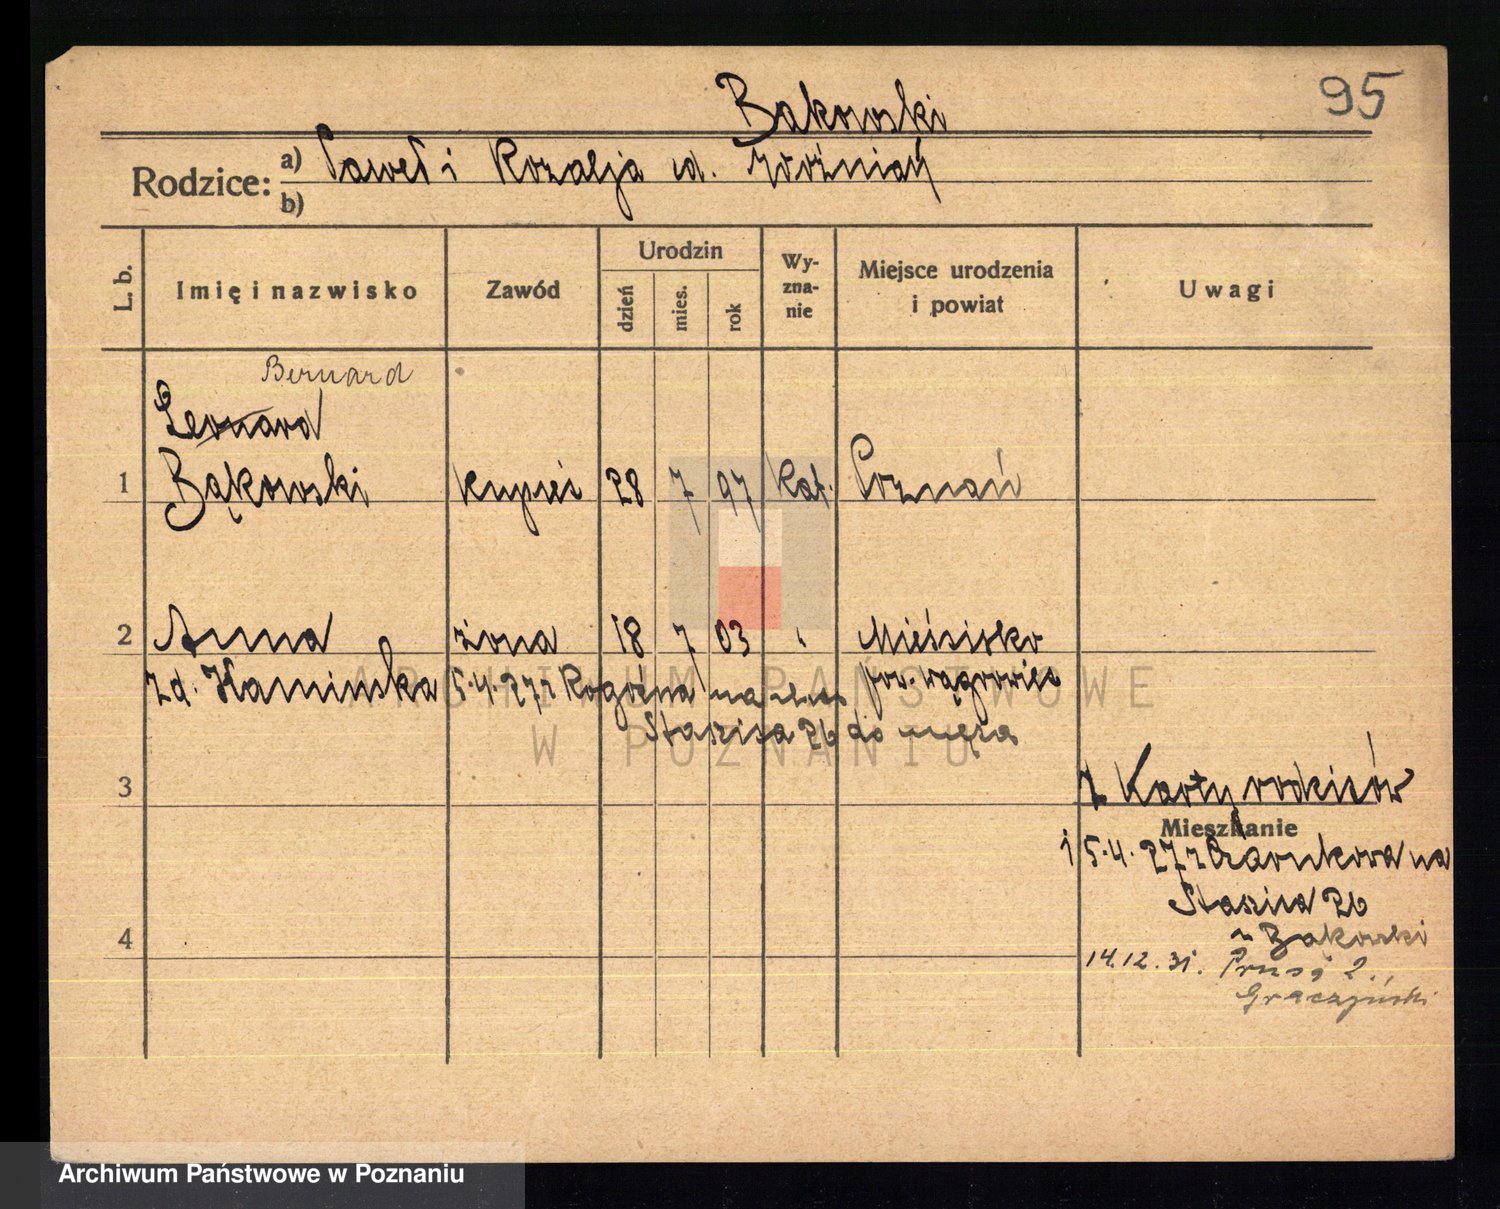 95
Bąkowski
Rodzice: a) Paweł i Rozalja zd. Woźniak
b)
L. b. Imię i nazwisko Zawód Urodzin dzień mies. rok Wy-zna-nie Miejsce urodzenia i powiat Uwagi
Bernard
Leonard
1 Bąkowski kupiec 28 7 97 Kat. Poznań
2 Anna żona 18 7 03 Mieścisko
zd. Kamińska 5.4.27 z Rogoźna na pow. Wągrowiec
Staszica 26 do męża
3
z Karty rodziców
Mieszkanie
i 5.4.27 z Czarnkowa na
Staszica 26
4
u Bąkowski
14.12.31. Prusa 2.
Graczyński
ARCHIWUM PAŃSTWOWE
W POZNANIU
Archiwum Państwowe w Poznaniu